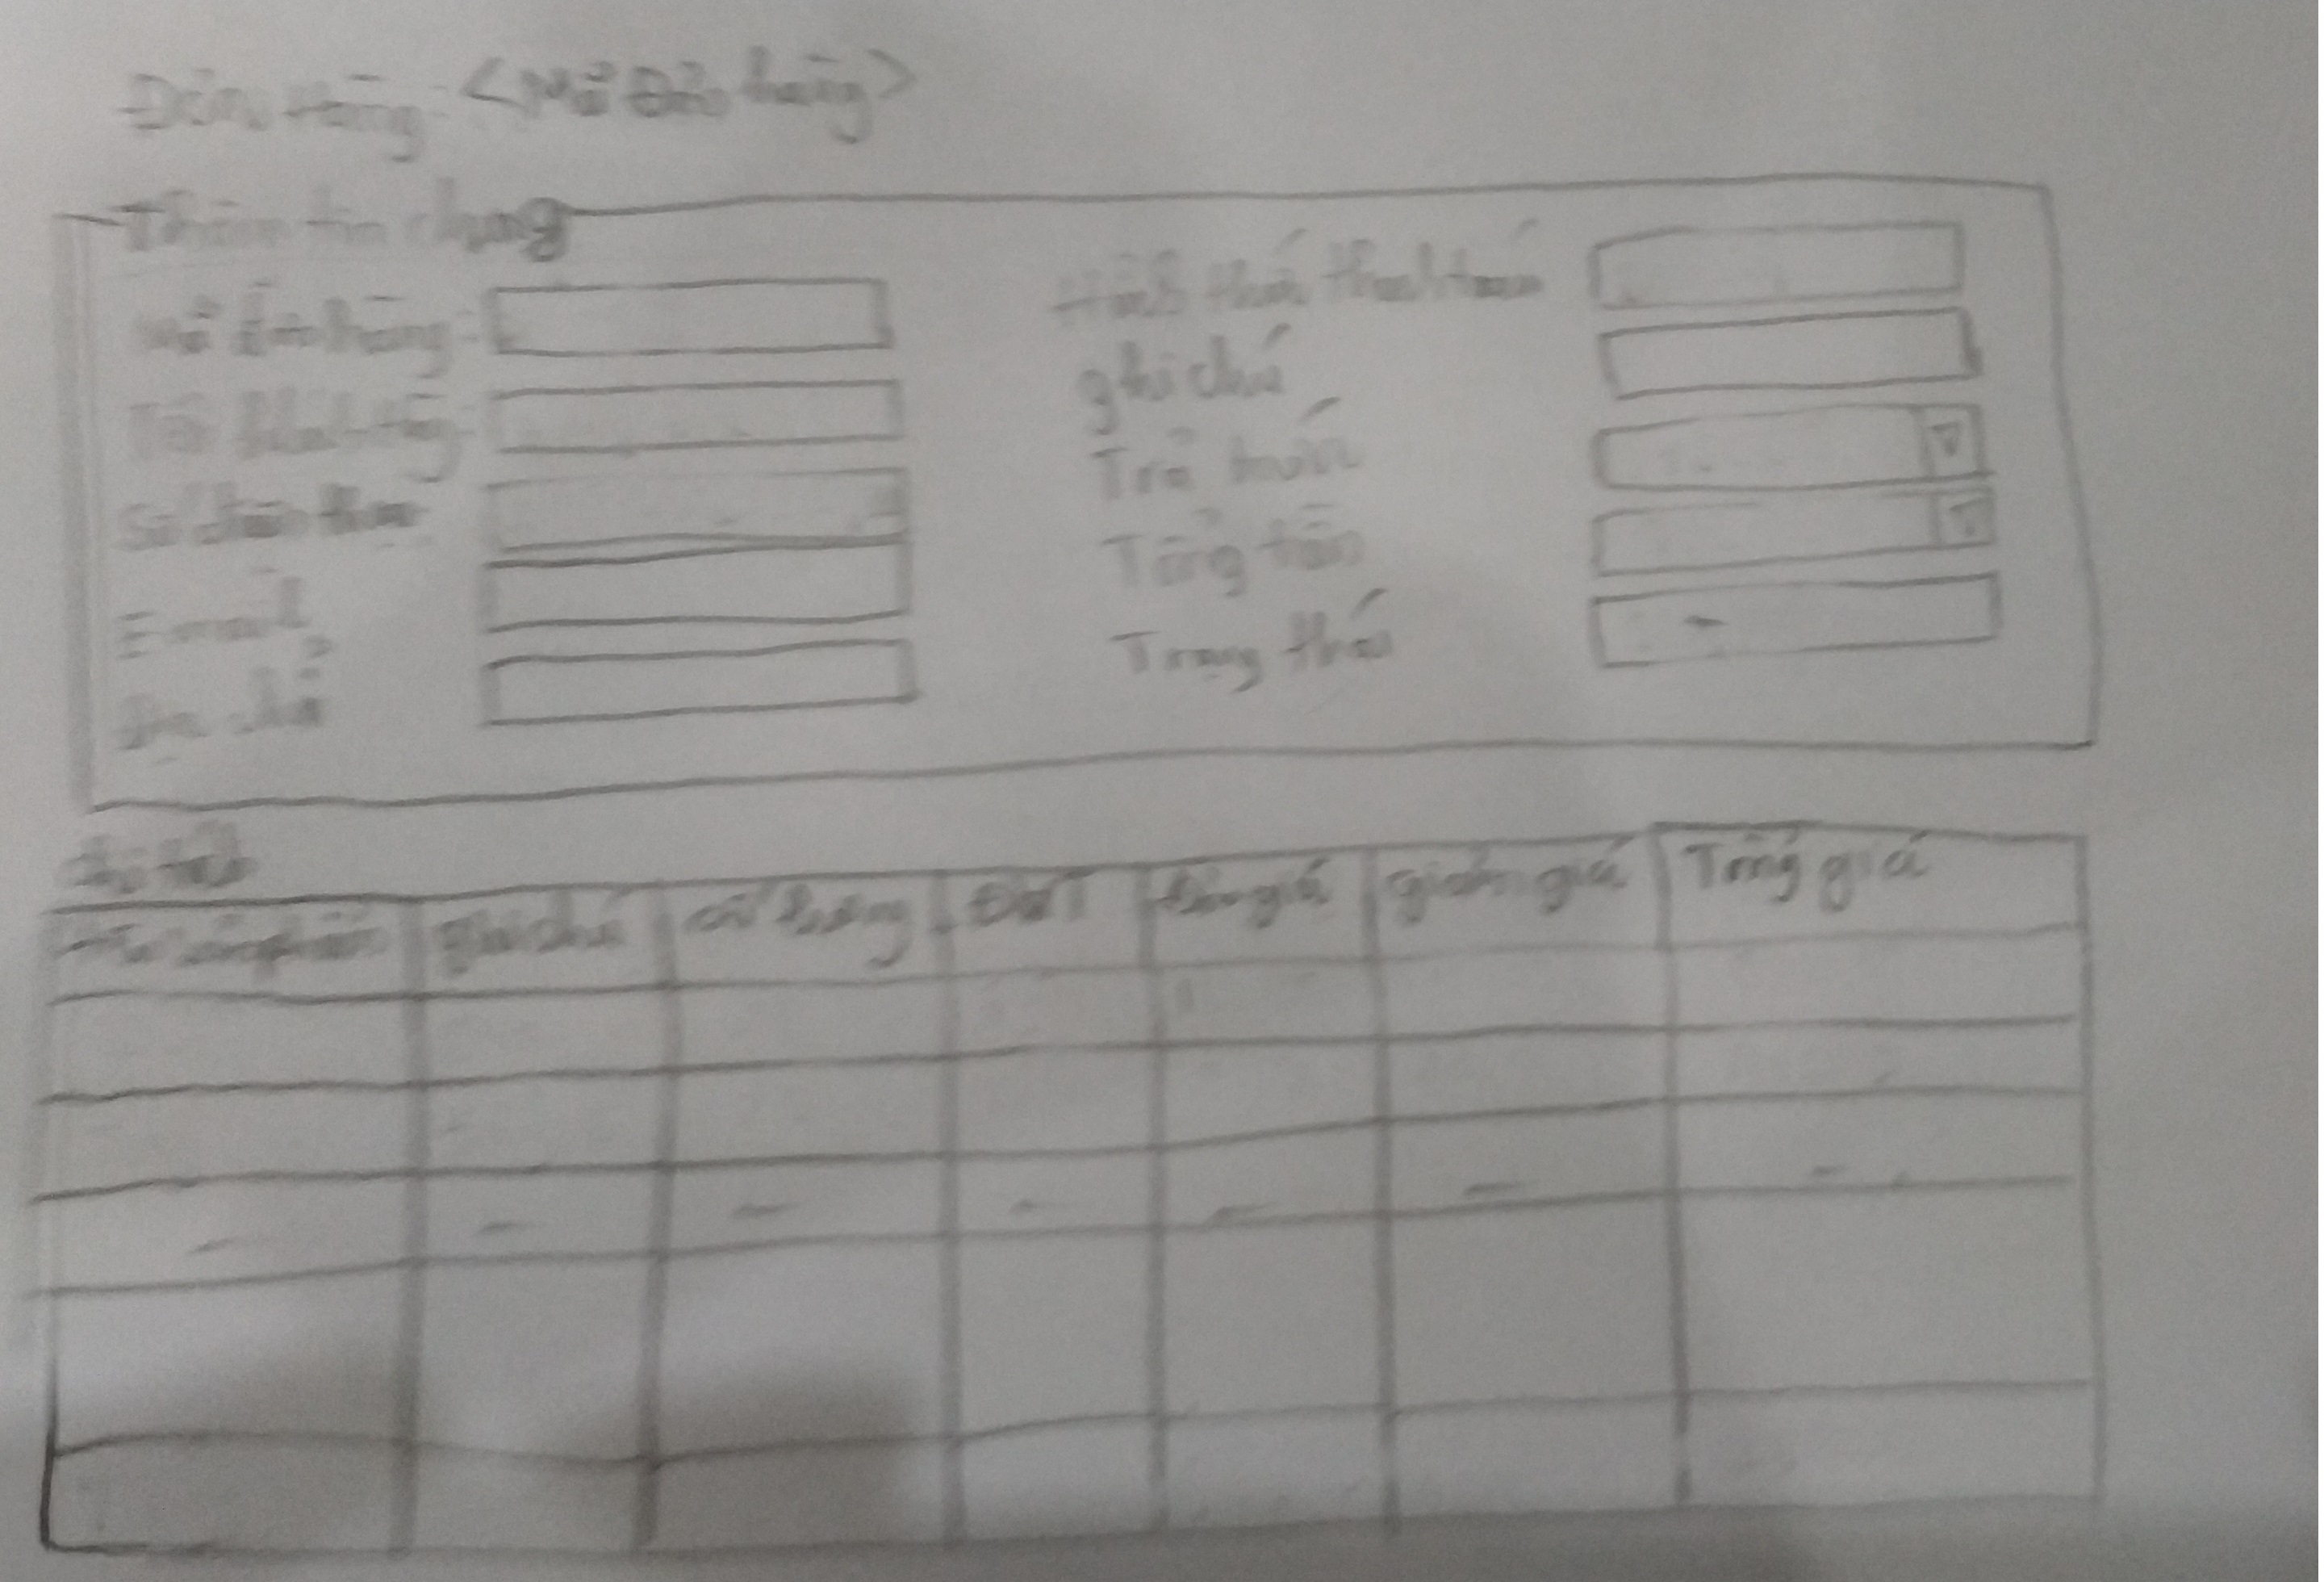 Đơn Hàng: <Mã Đơn hàng>
Thông tin chung
Mã đơn hàng:
Tên khách hàng:
Số điện thoại
E-mail
Địa chỉ
Hình thức thanh toán
ghi chú
Trả trước
Tổng tiền
Trạng thái
chi tiết
sản phẩm ghi chú số lượng ĐVT Đơn giá giảm giá Tổng giá